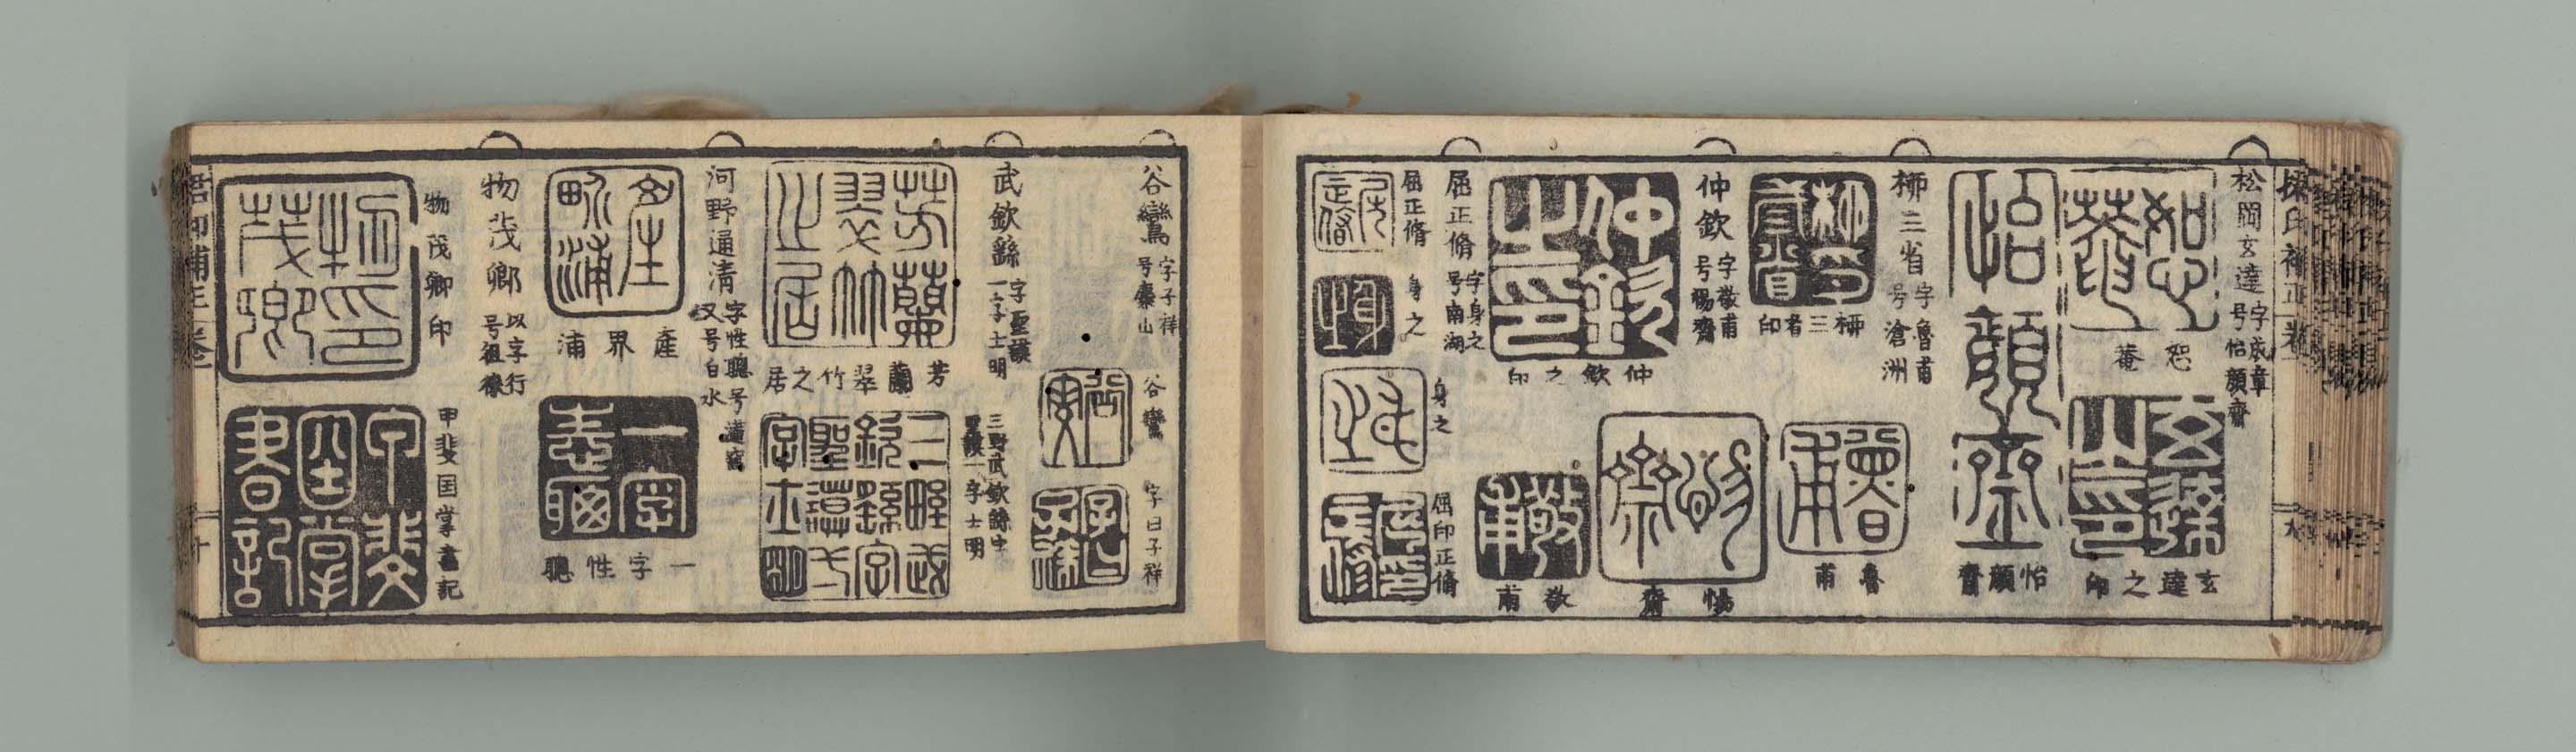 松岡玄達
字成章
号怡顔齋
恕菴
玄達之印
怡顔齋
柳三省
字魯甫
号滄洲
柳三省印
魯甫
仲欽
字敬甫
号惕齋
仲欽之印
惕齋
敬甫
屈正脩
字身之
号南湖
屈正脩
身之
身之
屈印正脩
谷鸞
字子祥
号麋山
谷鸞
字曰子祥
武欽繇
字聖謨
一字士明
芳蘭翠竹之居
三野武欽繇字
聖謨一字士明
河野通清
字性聰号
又号白水
產界浦
一字性聰
物茂卿
以字行
号徂徠
物茂卿印
甲斐国掌書記